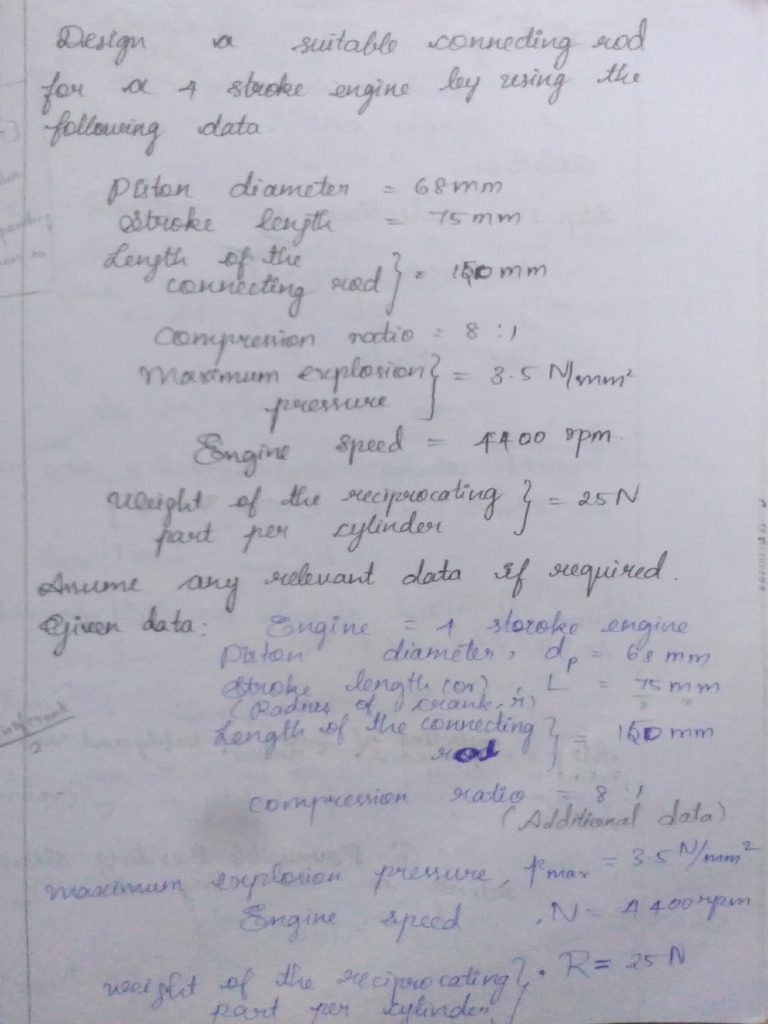 Design a suitable connecting rod
for a 4 stroke engine by using the
following data.
Piston diameter = 68mm
Stroke length = 75mm
Length of the
connecting rod } = 150mm
Compression ratio = 8 : 1
Maximum explosion
pressure } = 3.5 N/mm²
Engine speed = 4400 rpm.
Weight of the reciprocating
part per cylinder } = 25N
Assume any relevant data if required.
Given data: Engine = 4 storoke engine
Piston diameter, dp = 68 mm
Stroke length (or), L = 75 mm
(Radius of crank, r) 2
Length of the connecting
rod } = 150mm
compression ratio = 8 : 1
(Additional data)
maximum explosion pressure, Pmax = 3.5 N/mm²
Engine speed, N = 4400rpm
weight of the reciprocating
part per cylinder }, R = 25 N